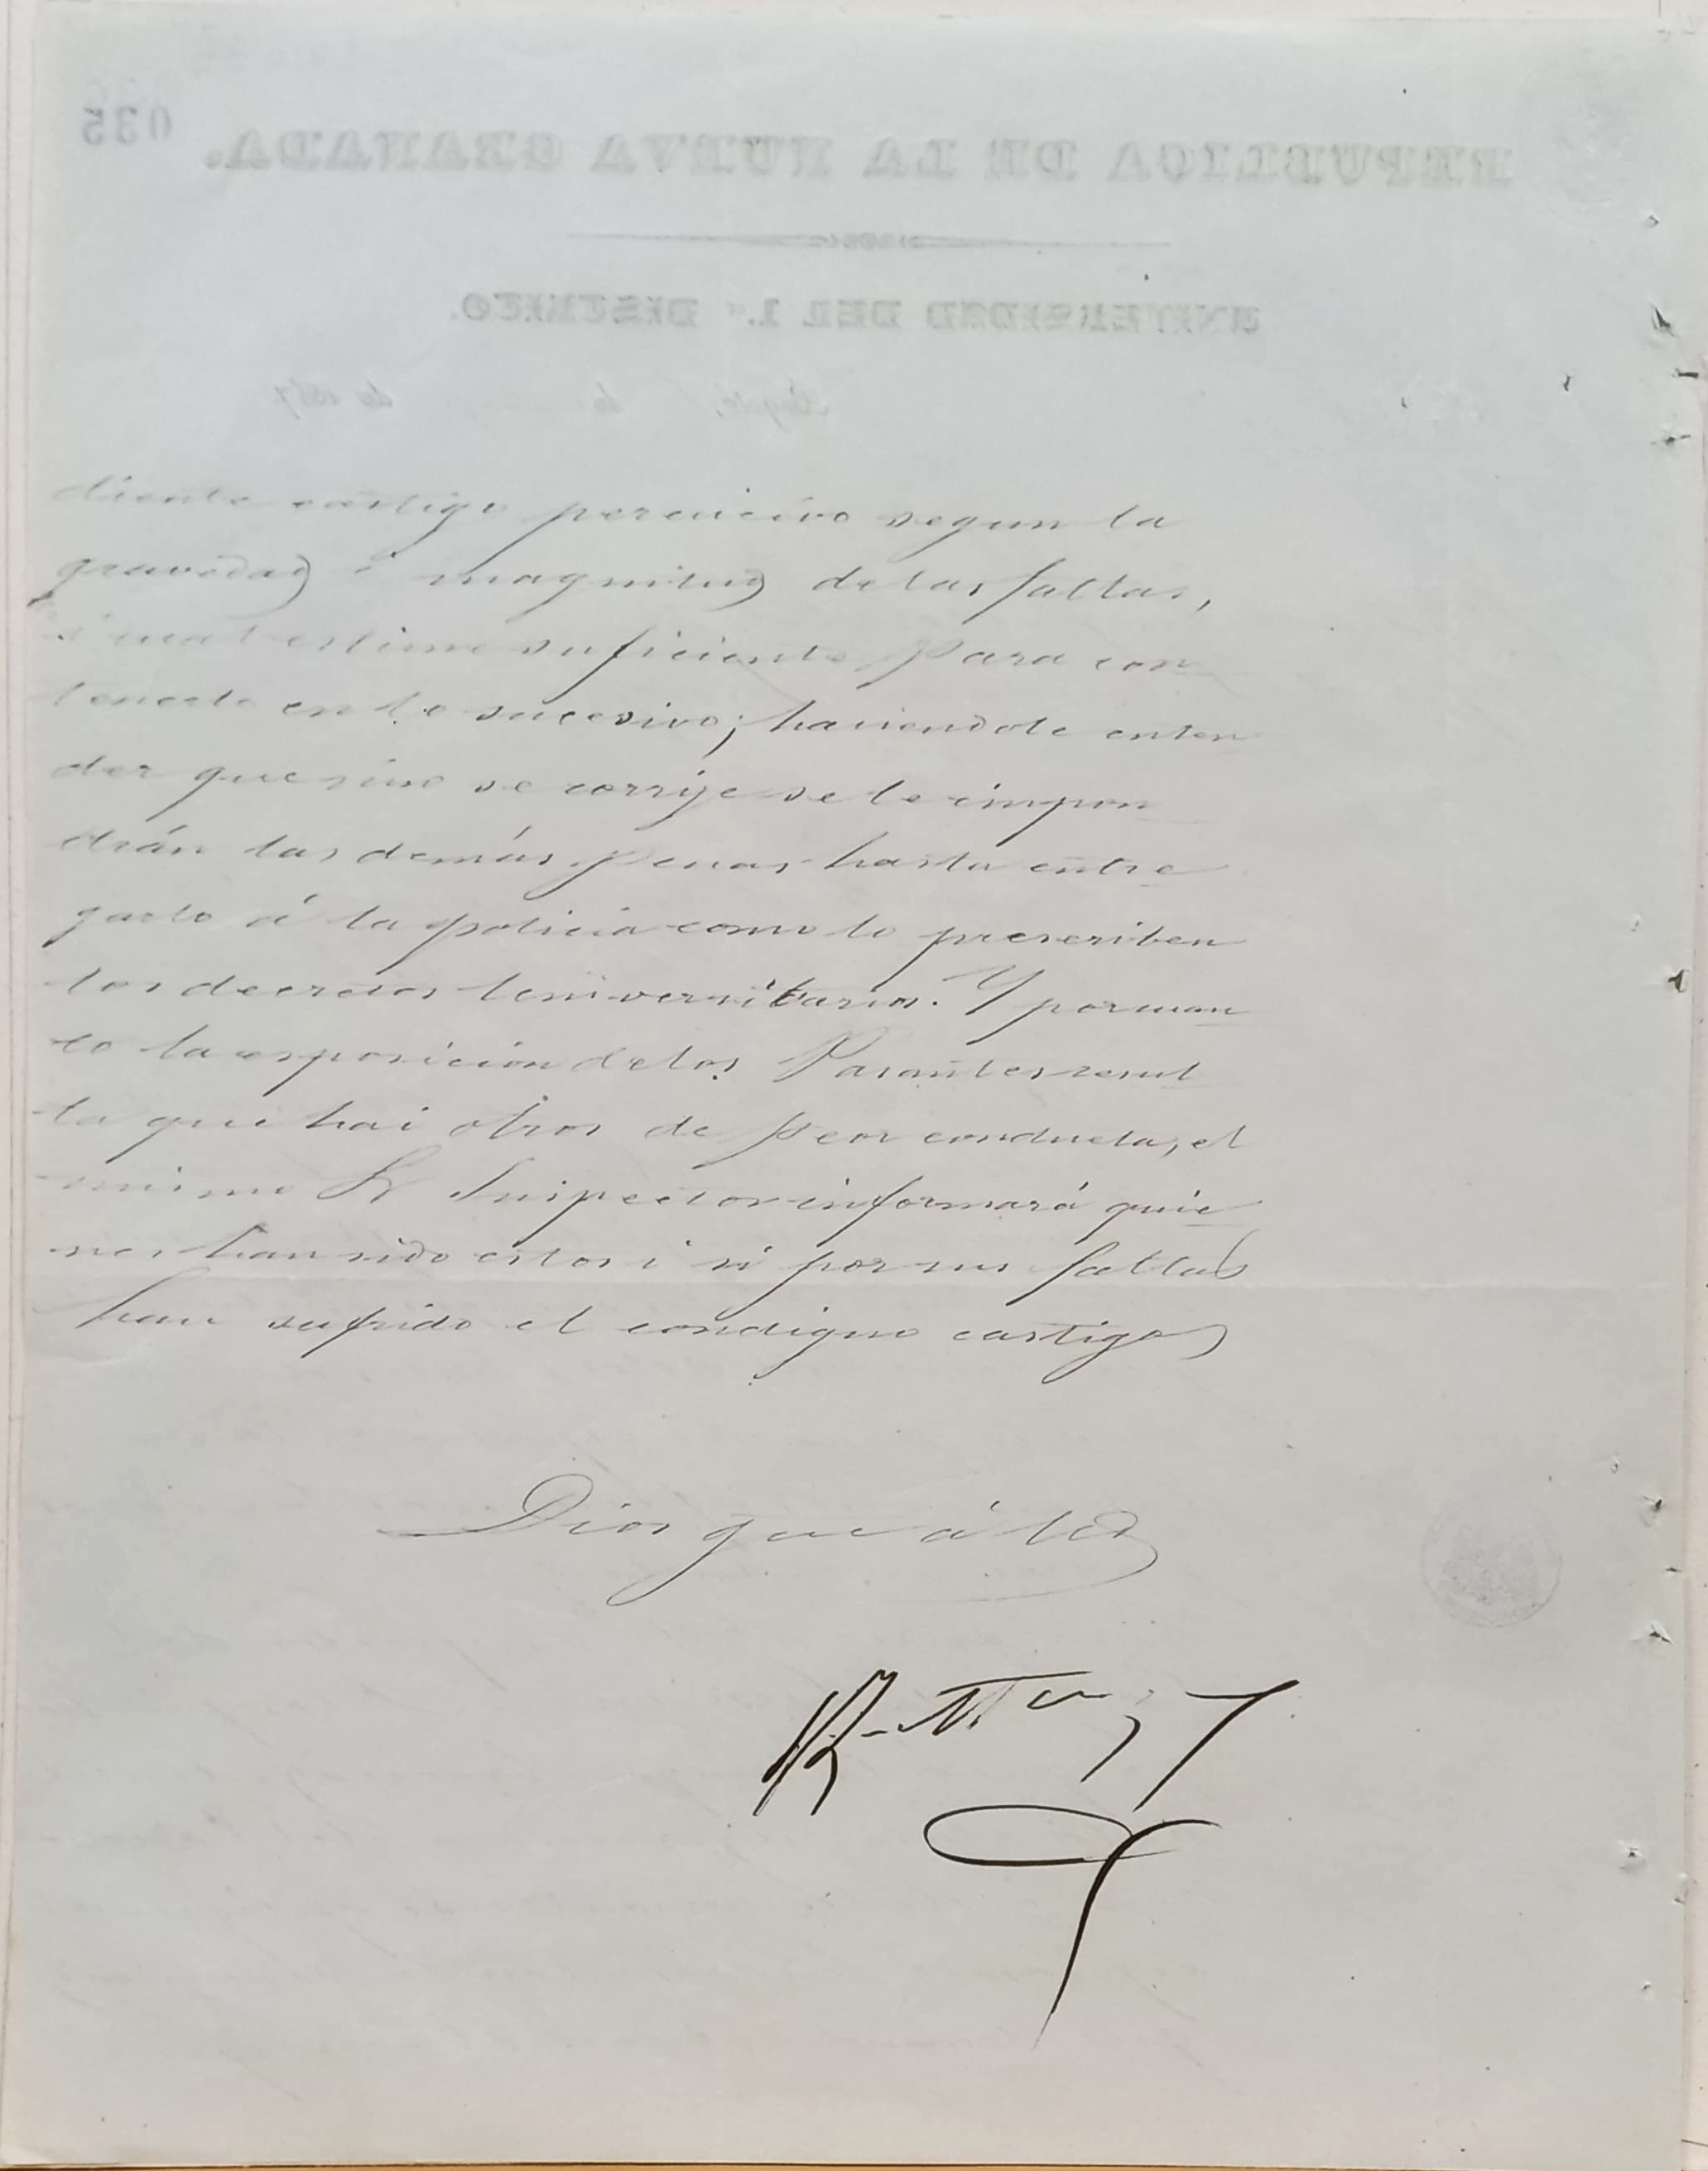 035
REPUBLICA DE LA NUEVA GRANADA.
UNIVERSIDAD DEL 1.er DISTRITO.
Bogotá, de de 184
diente castigo segun la
gravedad i magnitud de las faltas,
i cual estime suficiente para con
tenerlo en lo sucesivo; haciendole enten
der que sino se corrije se le impon
drán las demás penas hasta entre
garlo á la policia como lo prescriben
los decretos Universitarios. Y por cuan
to la esposicion de los Pasantes resul
ta que hai otros de peor conducta, el
mismo Sr Inspector informará quie
nes han sido estos i si por sus faltas
han sufrido el condigno castigo
Dios gue á Ud